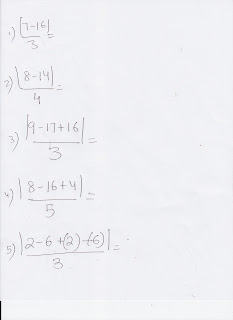 1) |7-16| =
3
2) |8-14| =
4
3) |9-17+16| =
3
4) |8-16+4| =
5
5) |2-6+(2)-(-6)| =
3